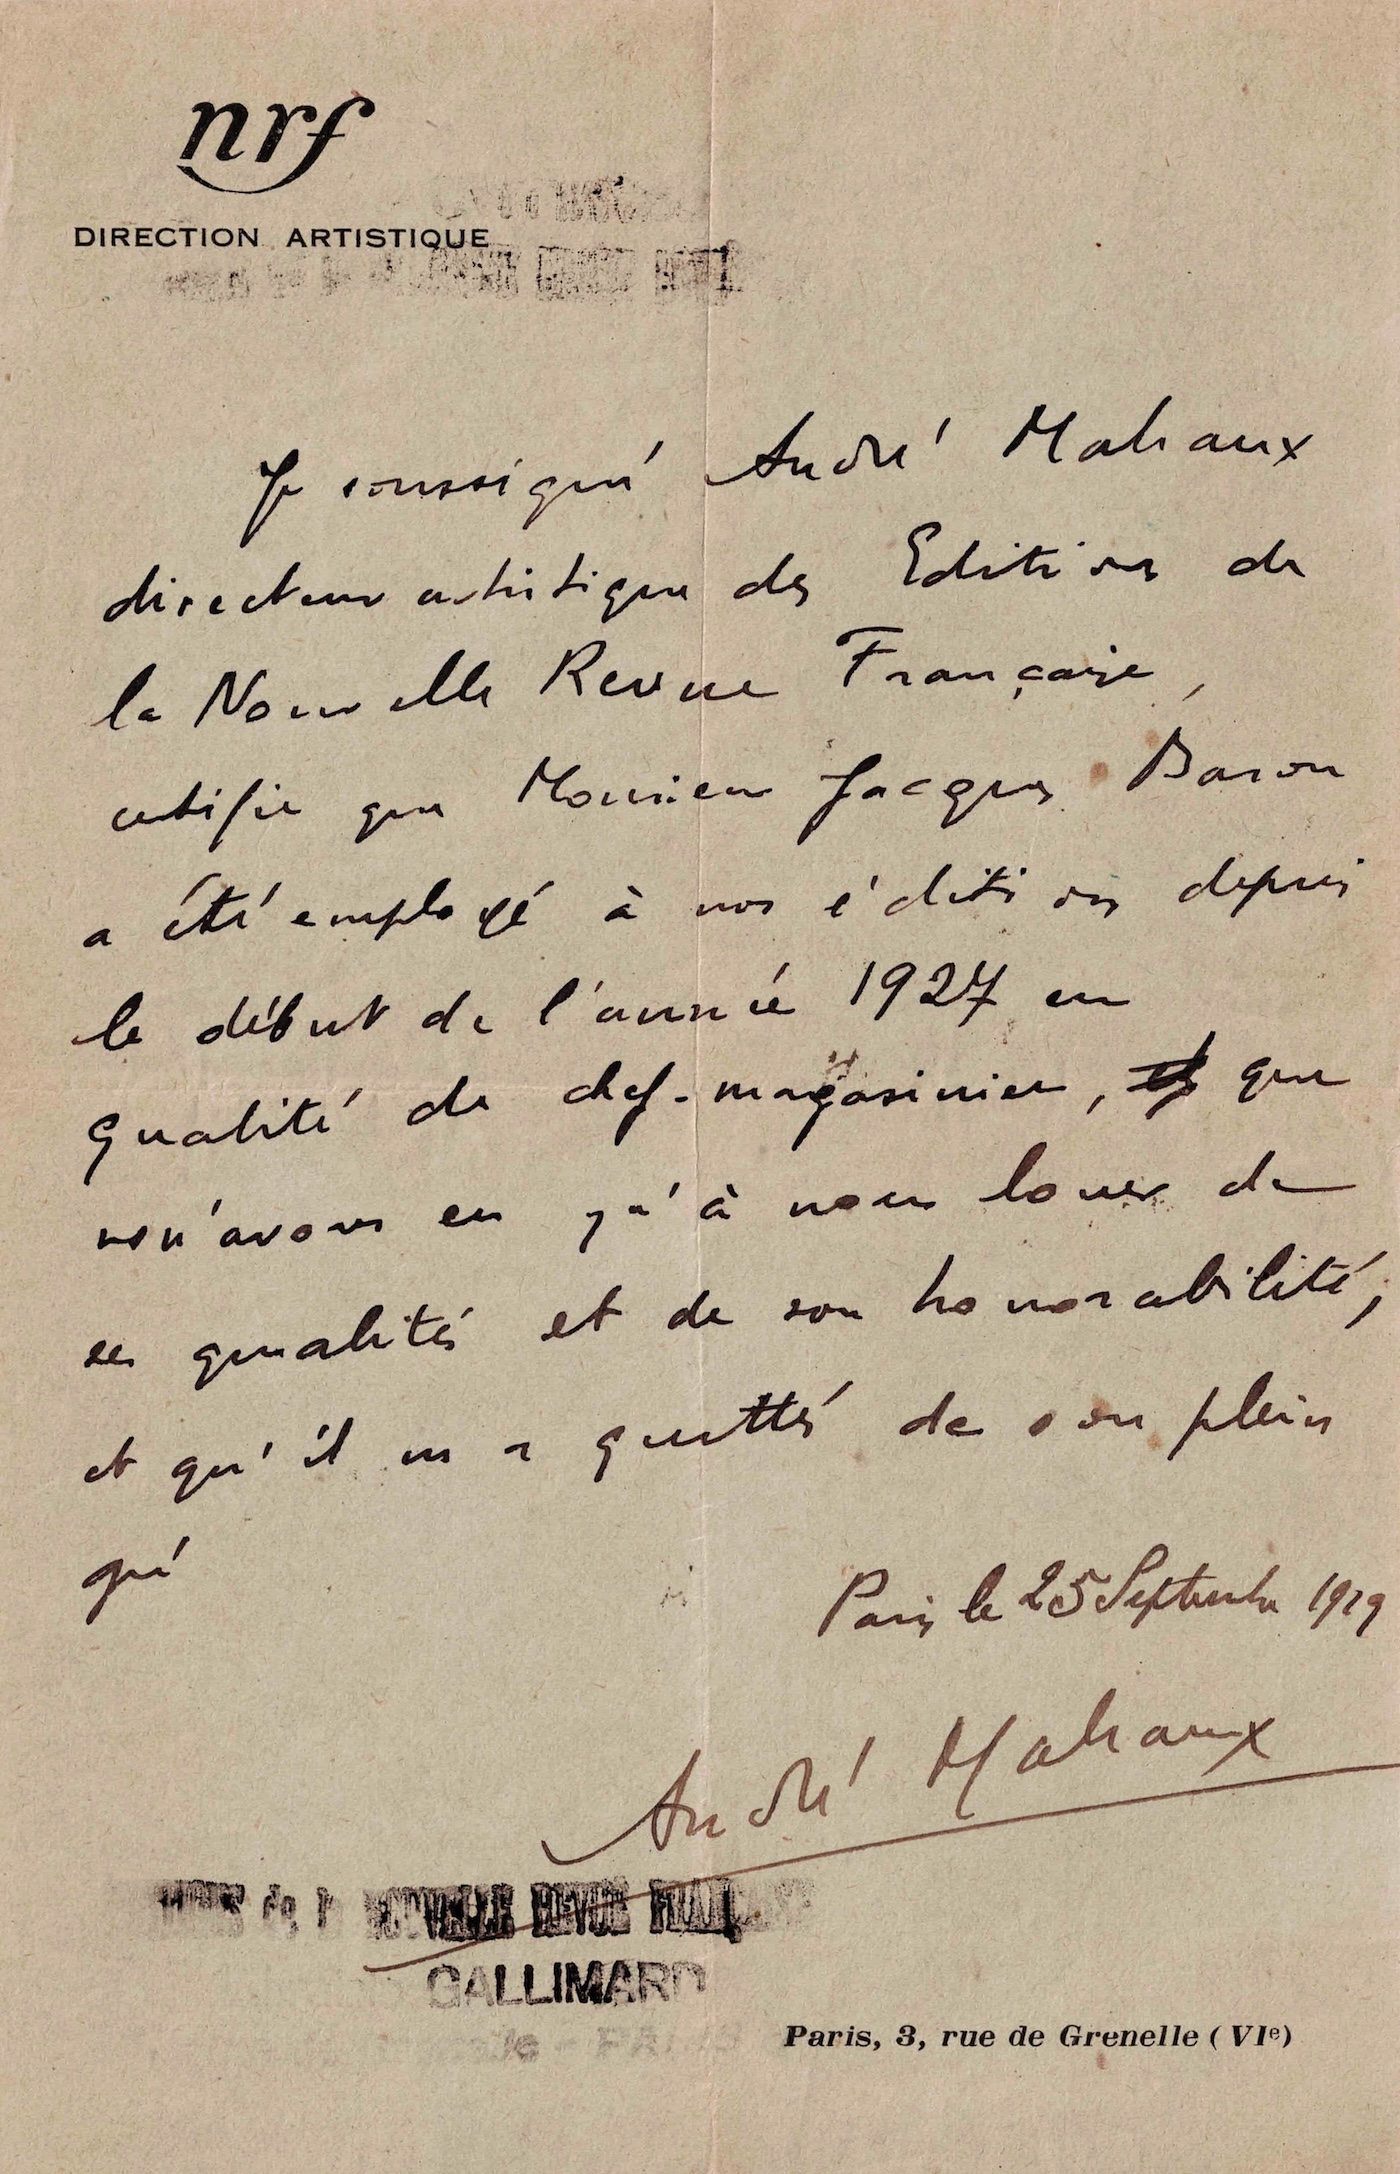 nrf
DIRECTION ARTISTIQUE
Je soussigné André Malraux
directeur artistique des Editions de
la Nouvelle Revue Française,
certifie que Monsieur Jacques Baron
a été employé à nos éditions depuis
le début de l'année 1927 en
qualité de chef-magasinier, que
nous n'avons eu qu'à nous louer de
ses qualités et de son honorabilité,
et qu'il nous a quittés de son plein
gré
Paris le 25 Septembre 1929
André Malraux
de NOUVELLE REVUE FRANÇAISE
GALLIMARD
Paris, 3, rue de Grenelle (VIe)